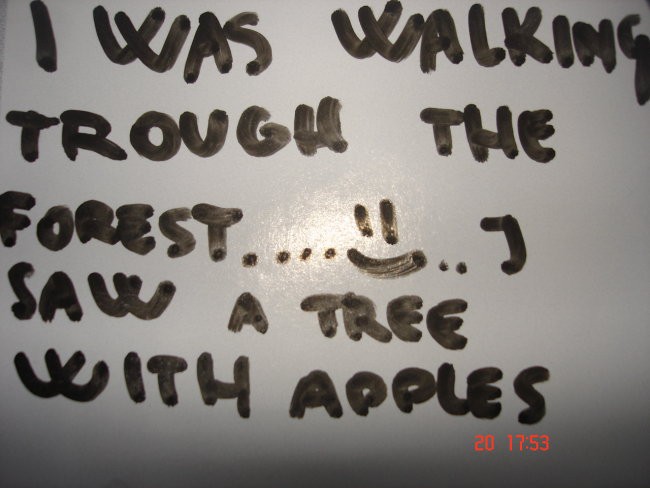 I WAS WALKING
TROUGH THE
FOREST..... ..J
SAW A TREE
WITH APPLES
20 17:53